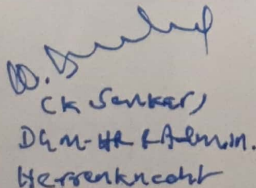 (K Sankar)
DGM-HR & Admin.
Herrenknecht